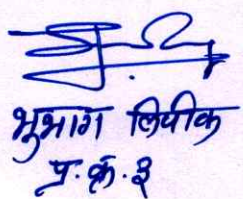 भुभाग लिपीक
प्र. क्र. ३